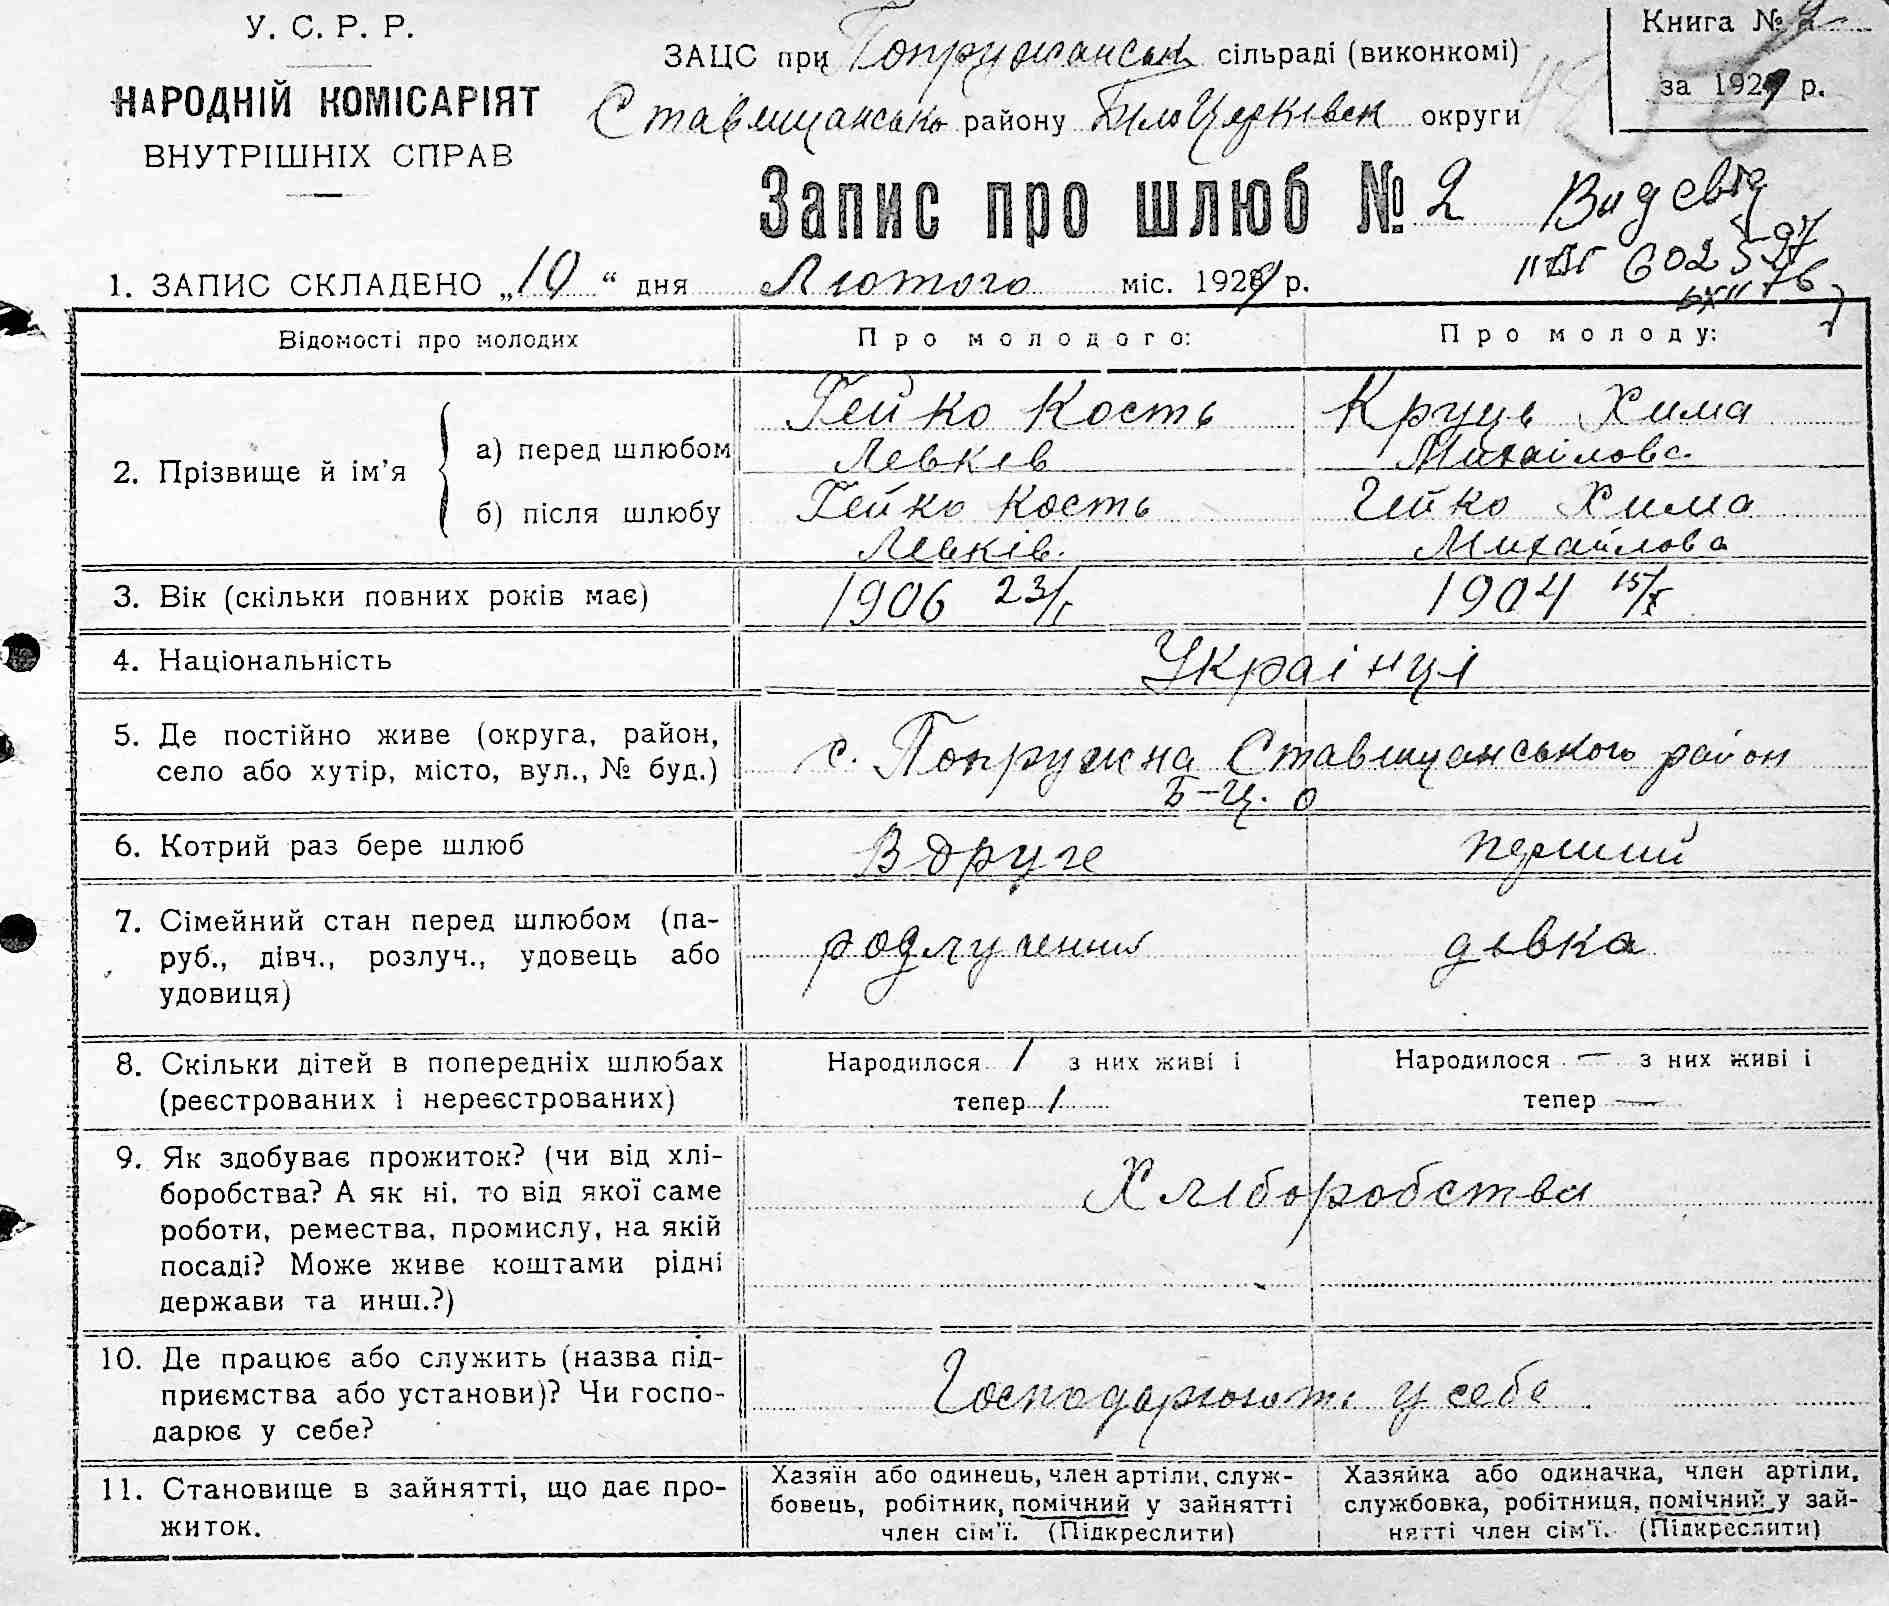 У. С. Р. Р.
НАРОДНІЙ КОМІСАРІЯТ
ВНУТРІШНІХ СПРАВ
ЗАЦС при Попружанськ сільраді (виконкомі)
Ставищансько району БілоЦерківськ округи
Книга №
за 1929 р.
Запис про шлюб № 2
Вид свід
602527
1. ЗАПИС СКЛАДЕНО „10“ дня Лютого міс. 1929 р.
Відомості про молодих
Про молодого:
Про молоду:
2. Прізвище й ім’я
а) перед шлюбом
Гейко Кость
Левків
Круць Хима
Михайлова
б) після шлюбу
Гейко Кость
Левків.
Гейко Хима
Михайлова
3. Вік (скільки повних років має)
1906 23/I
1904 15/X
4. Національність
Українці
5. Де постійно живе (округа, район,
село або хутір, місто, вул., № буд.)
с. Попружна Ставищанського район
Б-Ц. о
6. Котрий раз бере шлюб
Вдруге
перший
7. Сімейний стан перед шлюбом (па-
руб., дівч., розлуч., удовець або
удовиця)
розлучений
дівка
8. Скільки дітей в попередніх шлюбах
(реєстрованих і нереєстрованих)
Народилося 1 з них живі і
тепер 1
Народилося — з них живі і
тепер —
9. Як здобуває прожиток? (чи від хлі-
боробства? А як ні, то від якої саме
роботи, ремества, промислу, на якій
посаді? Може живе коштами рідні
держави та инш.?)
Хліборобства
10. Де працює або служить (назва під-
приємства або установи)? Чи госпо-
дарює у себе?
Господарюють у себе
11. Становище в зайнятті, що дає про-
житок.
Хазяїн або одинець, член артіли, служ-
бовець, робітник, помічний у зайнятті
член сім’ї. (Підкреслити)
Хазяйка або одиначка, член артіли,
службовка, робітниця, помічний у зай-
нятті член сім’ї. (Підкреслити)